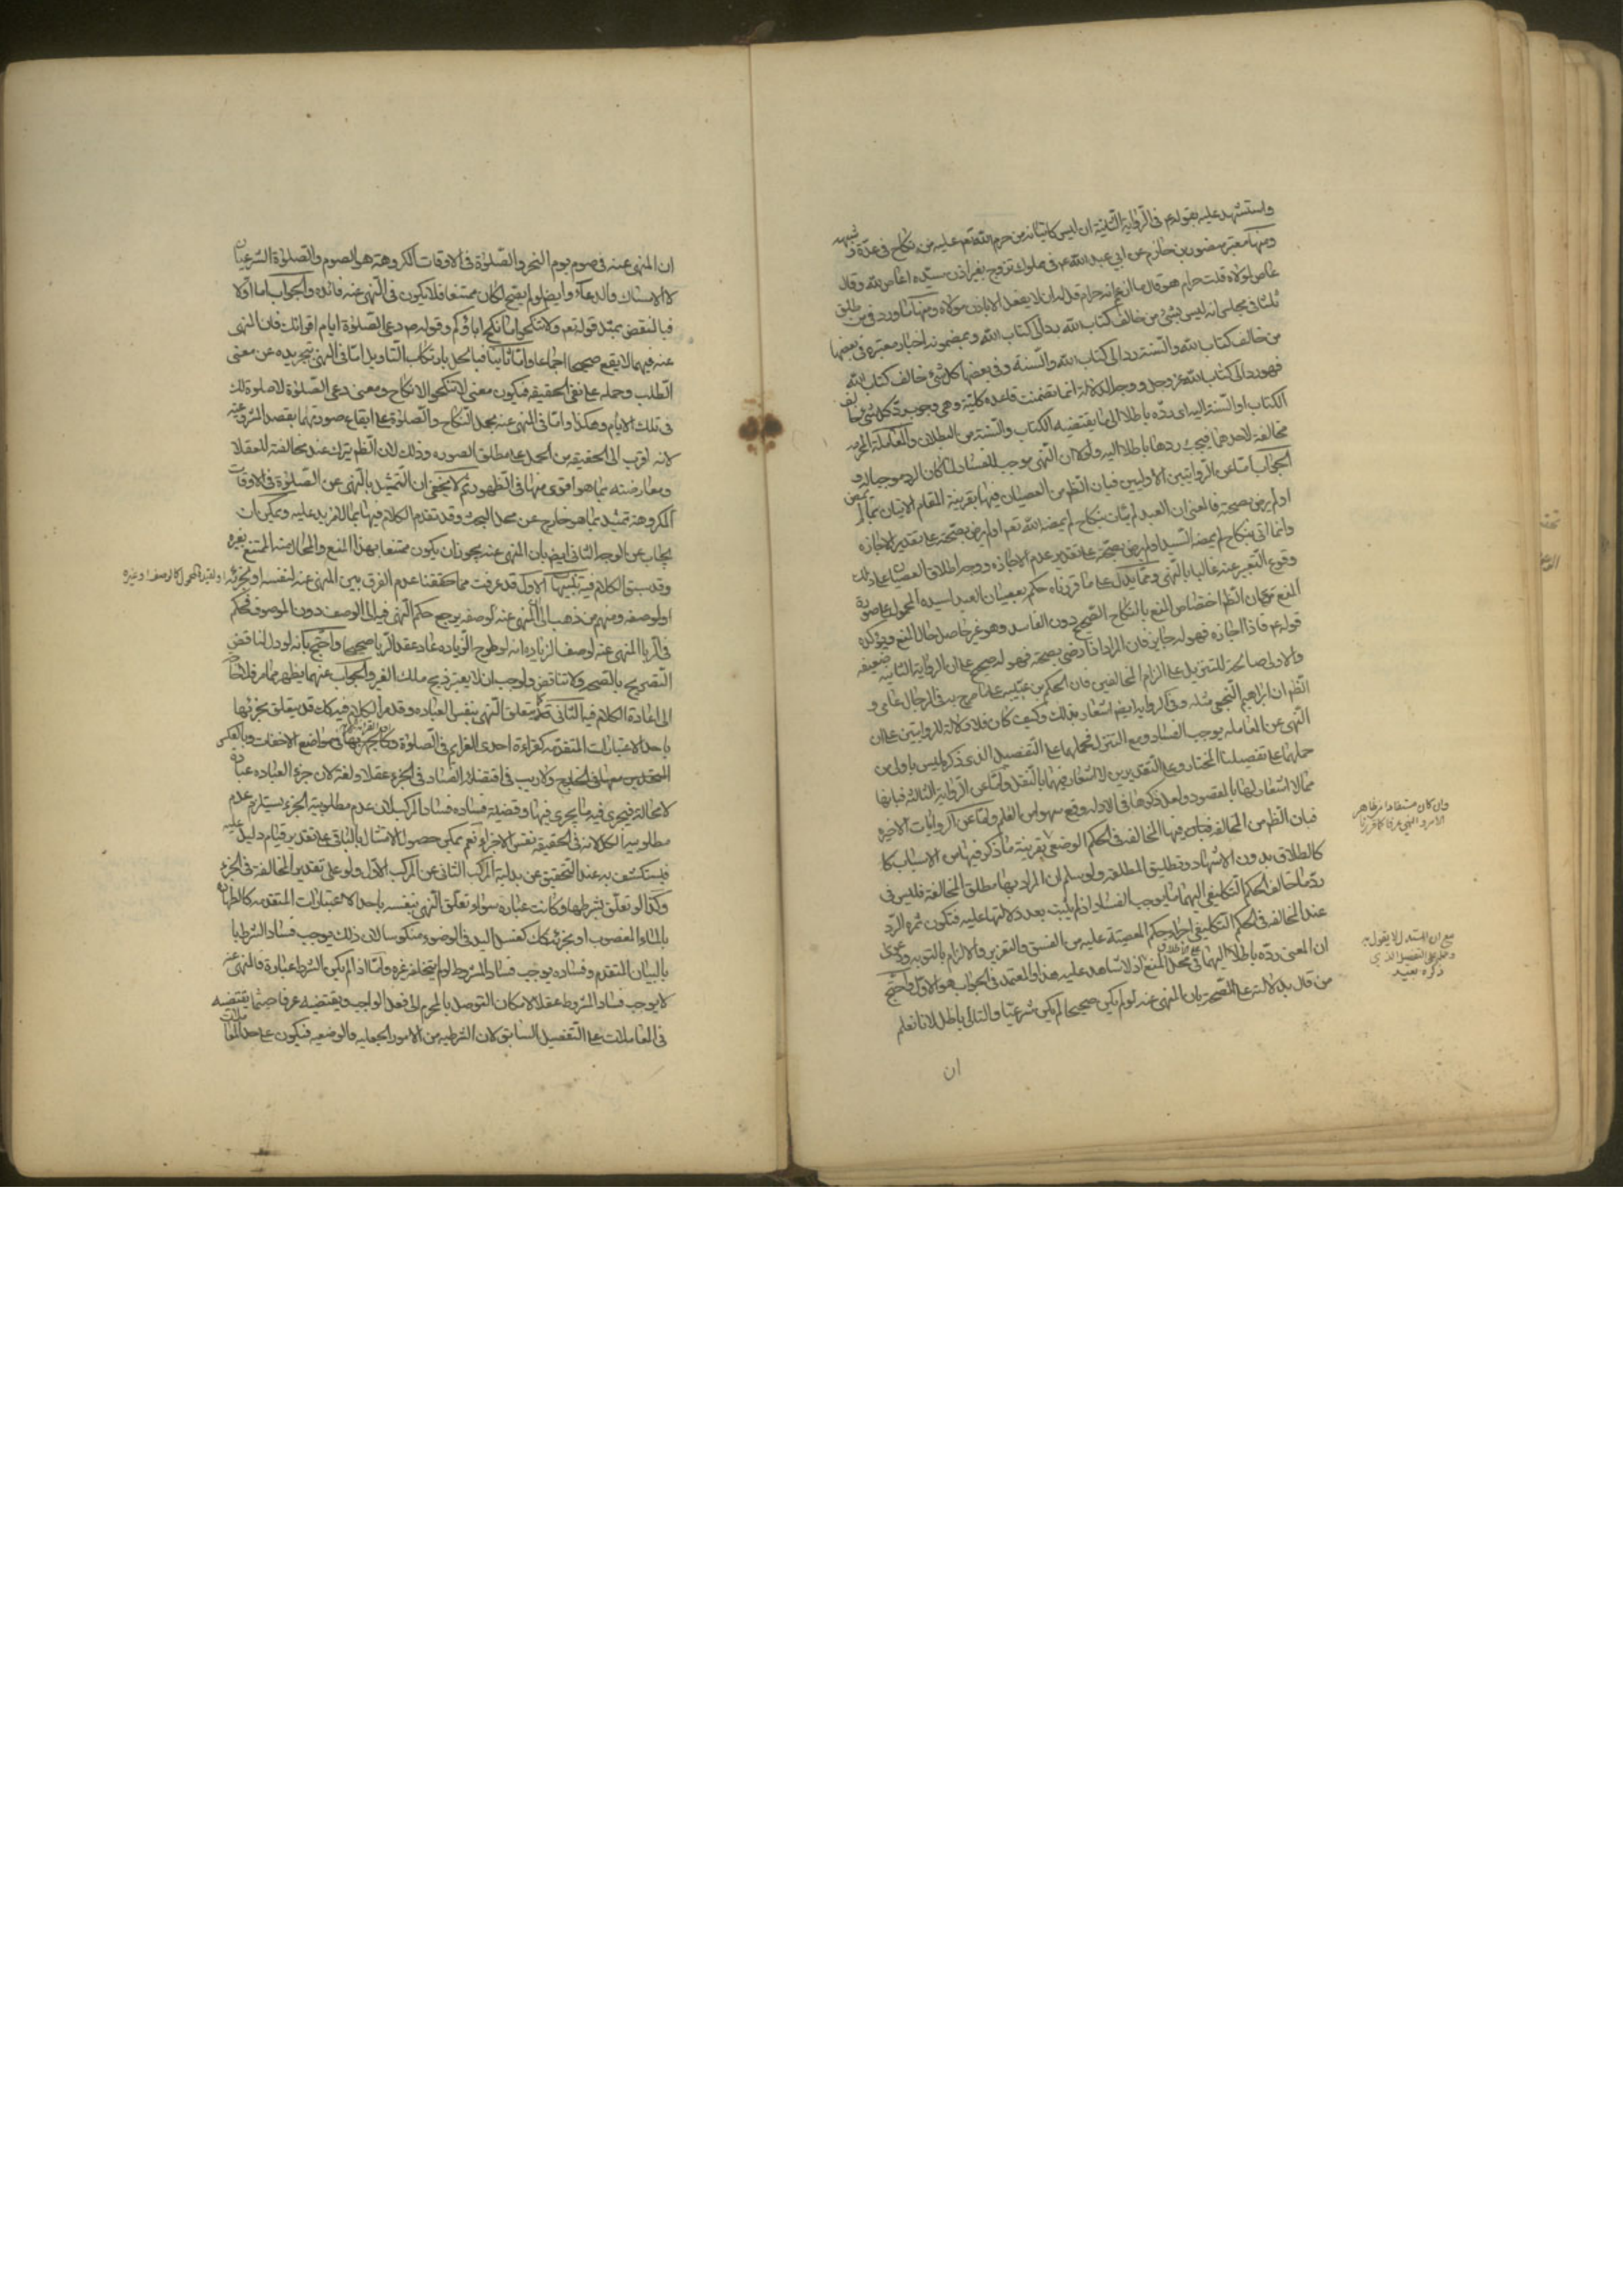 واستشهد عليه بقوله ع في الرواية الثانية ان ليس كاتيانه من حرم الله تعم عليه من نكاح في عدة و شبهه
ومنها معتبر منصور بن حازم عن ابي عبد الله ع في مملوك تزوج بغير اذن سيده اعاص لله قال
عاص لمولاه قلت حرام هو قال ما ازعم انه حرام قل له ان لا يفعل الا باذن مولاه ومنها ما ورد في من طلق
ثلثا في مجلس انه ليس بشئ من خالف كتاب الله رد الى كتاب الله وبمضمونه اخبار معتبره في بعضها
من خالف كتاب الله والسنة رد الى كتاب الله والسنة وفي بعضها كل شئ خالف كتاب الله
فهو رد الى كتاب الله عز وجل ووجه الدلالة انها تضمنت قاعدة كلية وهي وجوب رد كل شئ خالف
الكتاب او السنة اليه اى رده باطلا الى ما يقتضيه الكتاب والسنة من البطلان والمعاملة المحرمه
مخالفة لاحدهما فيجب ردها باطلا اليه ولولا ان النهى موجب للفساد لما كان الرد موجبا له و
الجواب اما عن الروايتين الاوليين فبان الظم من العصيان فيها بقرينة المقام الاتيان بما لم يمض
او لم يرض بصحته فالمعنى ان العبد لم يئات بنكاح لم يمضه الله تعم او لم يرض بصحته على تقدير الاجازه
وانما اتى بنكاح لم يمضه السيد او لم يرض بصحته على تقدير عدم الاجازه ووجه اطلاق العصيان على ذلك
وقوع التعبير عنه غالبا بالنهى ومما يدل على ما قررناه حكمه بعصيان العبد لسيده المحمول على صورة
المنع مع ان الظم اختصاص المنع بالنكاح الصحيح دون الفاسد وهو غير حاصل حال المنع ويؤكده
قوله ع فاذا اجازه فهو له جايز فان المراد فاذا رضى بصحته فهو له صحيح على ان الرواية الثانية ضعيفه
والاولى صالحة للتنزيل على الزام المخالفين فان الحكم بن عتيبه على ما صرح به في الرجال عامى و
الظم ان ابراهيم النخعى مثله وفي الرواية ايضم اشعار بذلك وكيف كان فلا دلالة للروايتين على ان
النهى عن المعامله يوجب الفساد ومع التنزل فحملهما على التفصيل الذى ذكره ليس باولى من
حملهما على تفصيلنا المختار وعلى التقديرين لا اشعار فيهما بالنقل واما عن الرواية الثالثة فبانها
مما لا اشعار لها بالمقصود ولعل ذكرها في الادله وقع سهوا من القلم واما عن الروايات الاخيره
فبان الظم من المخالفه فيها المخالفه في الحكم الوضعى بقرينة ما ذكر فيها من الاسباب كا
كالطلاق بدون الاشهاد وتطليق المطلقه ولو سلم ان المراد بها مطلق المخالفة فليس في
رد ما خالف الحكم التكليفى اليهما ما يوجب الفساد اذا لم يثبت بعد دلالتهما عليه فتكون ثمره الرد
عند المخالفه في الحكم التكليفى اجراء حكم المعصية عليه من الفسق والتعزير والالزام بالتوبه ودعوى
ان المعنى رده باطلا اليهما على الاطلاق في محل المنع اذ لا شاهد عليه هذا والمعتمد في الجواب هو الاول واحتج
من قال بدلالته على الصحة بان المنهى عنه لو لم يكن صحيحا لم يكن شرعيا والتالى باطل لانا نعلم
ان
وان كان مستفادا من ظاهر
الامر والنهى عرفا كما قررنا
مع ان المستدل لا يقول به
وحمله على التفصيل الذى
ذكره بعيد
ان المنهى عنه في صوم يوم النحر والصلوة في الاوقات المكروهة هو الصوم والصلوة الشرعيان
لا الامساك والدعاء وايضم لو لم يصح لكان ممتنعا فلا يكون في النهى عنه فائده والجواب اما اولا
فبالنقض بمثل قوله تعم ولا تنكحوا ما نكح اباؤكم وقوله ص دعى الصلوة ايام اقرائك فان المنهى
عنه فيهما لا يقع صحيحا اجماعا واما ثانيا فبالحل بارتكاب التاويل اما في النهى بتجريده عن معنى
الطلب وحمله على نفى الحقيقه فيكون معنى لا تنكحوا لا نكاح ومعنى دعى الصلوة لا صلوة لك
في تلك الايام وهكذا واما في المنهى عنه بحمل النكاح والصلوة على ايقاع صورتهما بقصد الشرعية
لانه اقرب الى الحقيقه من الحمل على مطلق الصوره وذلك لان الظم يترك عند مخالفته للعقل
ومعارضته بما هو اقوى منها في الظهور ثم لا يخفى ان التمثيل بالنهى عن الصلوة في الاوقات
المكروهة تمثيل بما هو خارج عن محل البحث وقد تقدم الكلام فيها بما لا مزيد عليه ويمكن ان
يجاب عن الوجه الثانى ايضم بان المنهى عنه يجوز ان يكون ممتنعا بهذا المنع والمحال منه الممتنع بغيره
وقد سبق الكلام فيه تنبيهات الاول قد عرفت مما حققنا عدم الفرق بين المنهى عنه لنفسه او لجزئه
او لوصفه ومنهم من ذهب الى ان المنهى عنه لوصفه يرجع حكم النهى فيه الى الوصف دون الموصوف فحكم
في الربا المنهى عنه لوصف الزياده انه لو طرح الزياده عاد عقد الربا صحيحا واحتج بانه لو دل لناقض
التصريح بالصحة ولا تناقض ولوجب ان لا يعتبر ذبح ملك الغير والجواب عنهما يظهر مما مر فلا حاجة
الى اعادة الكلام فيه الثانى كما يتعلق النهى بنفس العباده وقد مر الكلام فيه كك قد يتعلق بجزئها
باحد الاعتبارات المتقدمه كقراءة احدى العزايم في الصلوة وكالجهر بها في مواضع الاخفات وبالعكس
المتحدين معها في الخارج ولا ريب في اقتضائه الفساد في الجزء عقلا ولغة لان جزء العباده عبادة
لا محالة فيجرى فيه ما يجرى فيها وقضية فساده فساد المركب لان عدم مطلوبية الجزء يستلزم عدم
مطلوبية الكل لانه في الحقيقة نفس الاجزاء نعم يمكن حصول الامتثال بالباقى على تقدير قيام دليل عليه
فيستكشف به عند التحقيق عن بدلية المركب الثانى عن المركب الاول ولو على تقدير المخالفة في الجزء
وكذا لو تعلق بشرطها وكانت عبادة سواء تعلق النهى بنفسه باحد الاعتبارات المتقدمه كالطهارة
بالماء المغصوب او بجزئه كك كغسل اليد في الوضوء منكوسا لان ذلك يوجب فساد الشرط با
بالبيان المتقدم وفساده يوجب فساد المشروط لو لم يتخلفه غيره واما اذا لم يكن الشرط عبادة فالنهى عنه
لا يوجب فساد المشروط عقلا لامكان التوصل بالمحرم الى فعل الواجب ويقتضيه عرفا حيثما يقتضيه
في المعاملات على التفصيل السابق لان الشرطيه من الامور الجعليه والوضعيه فيكون على حد المعاملات